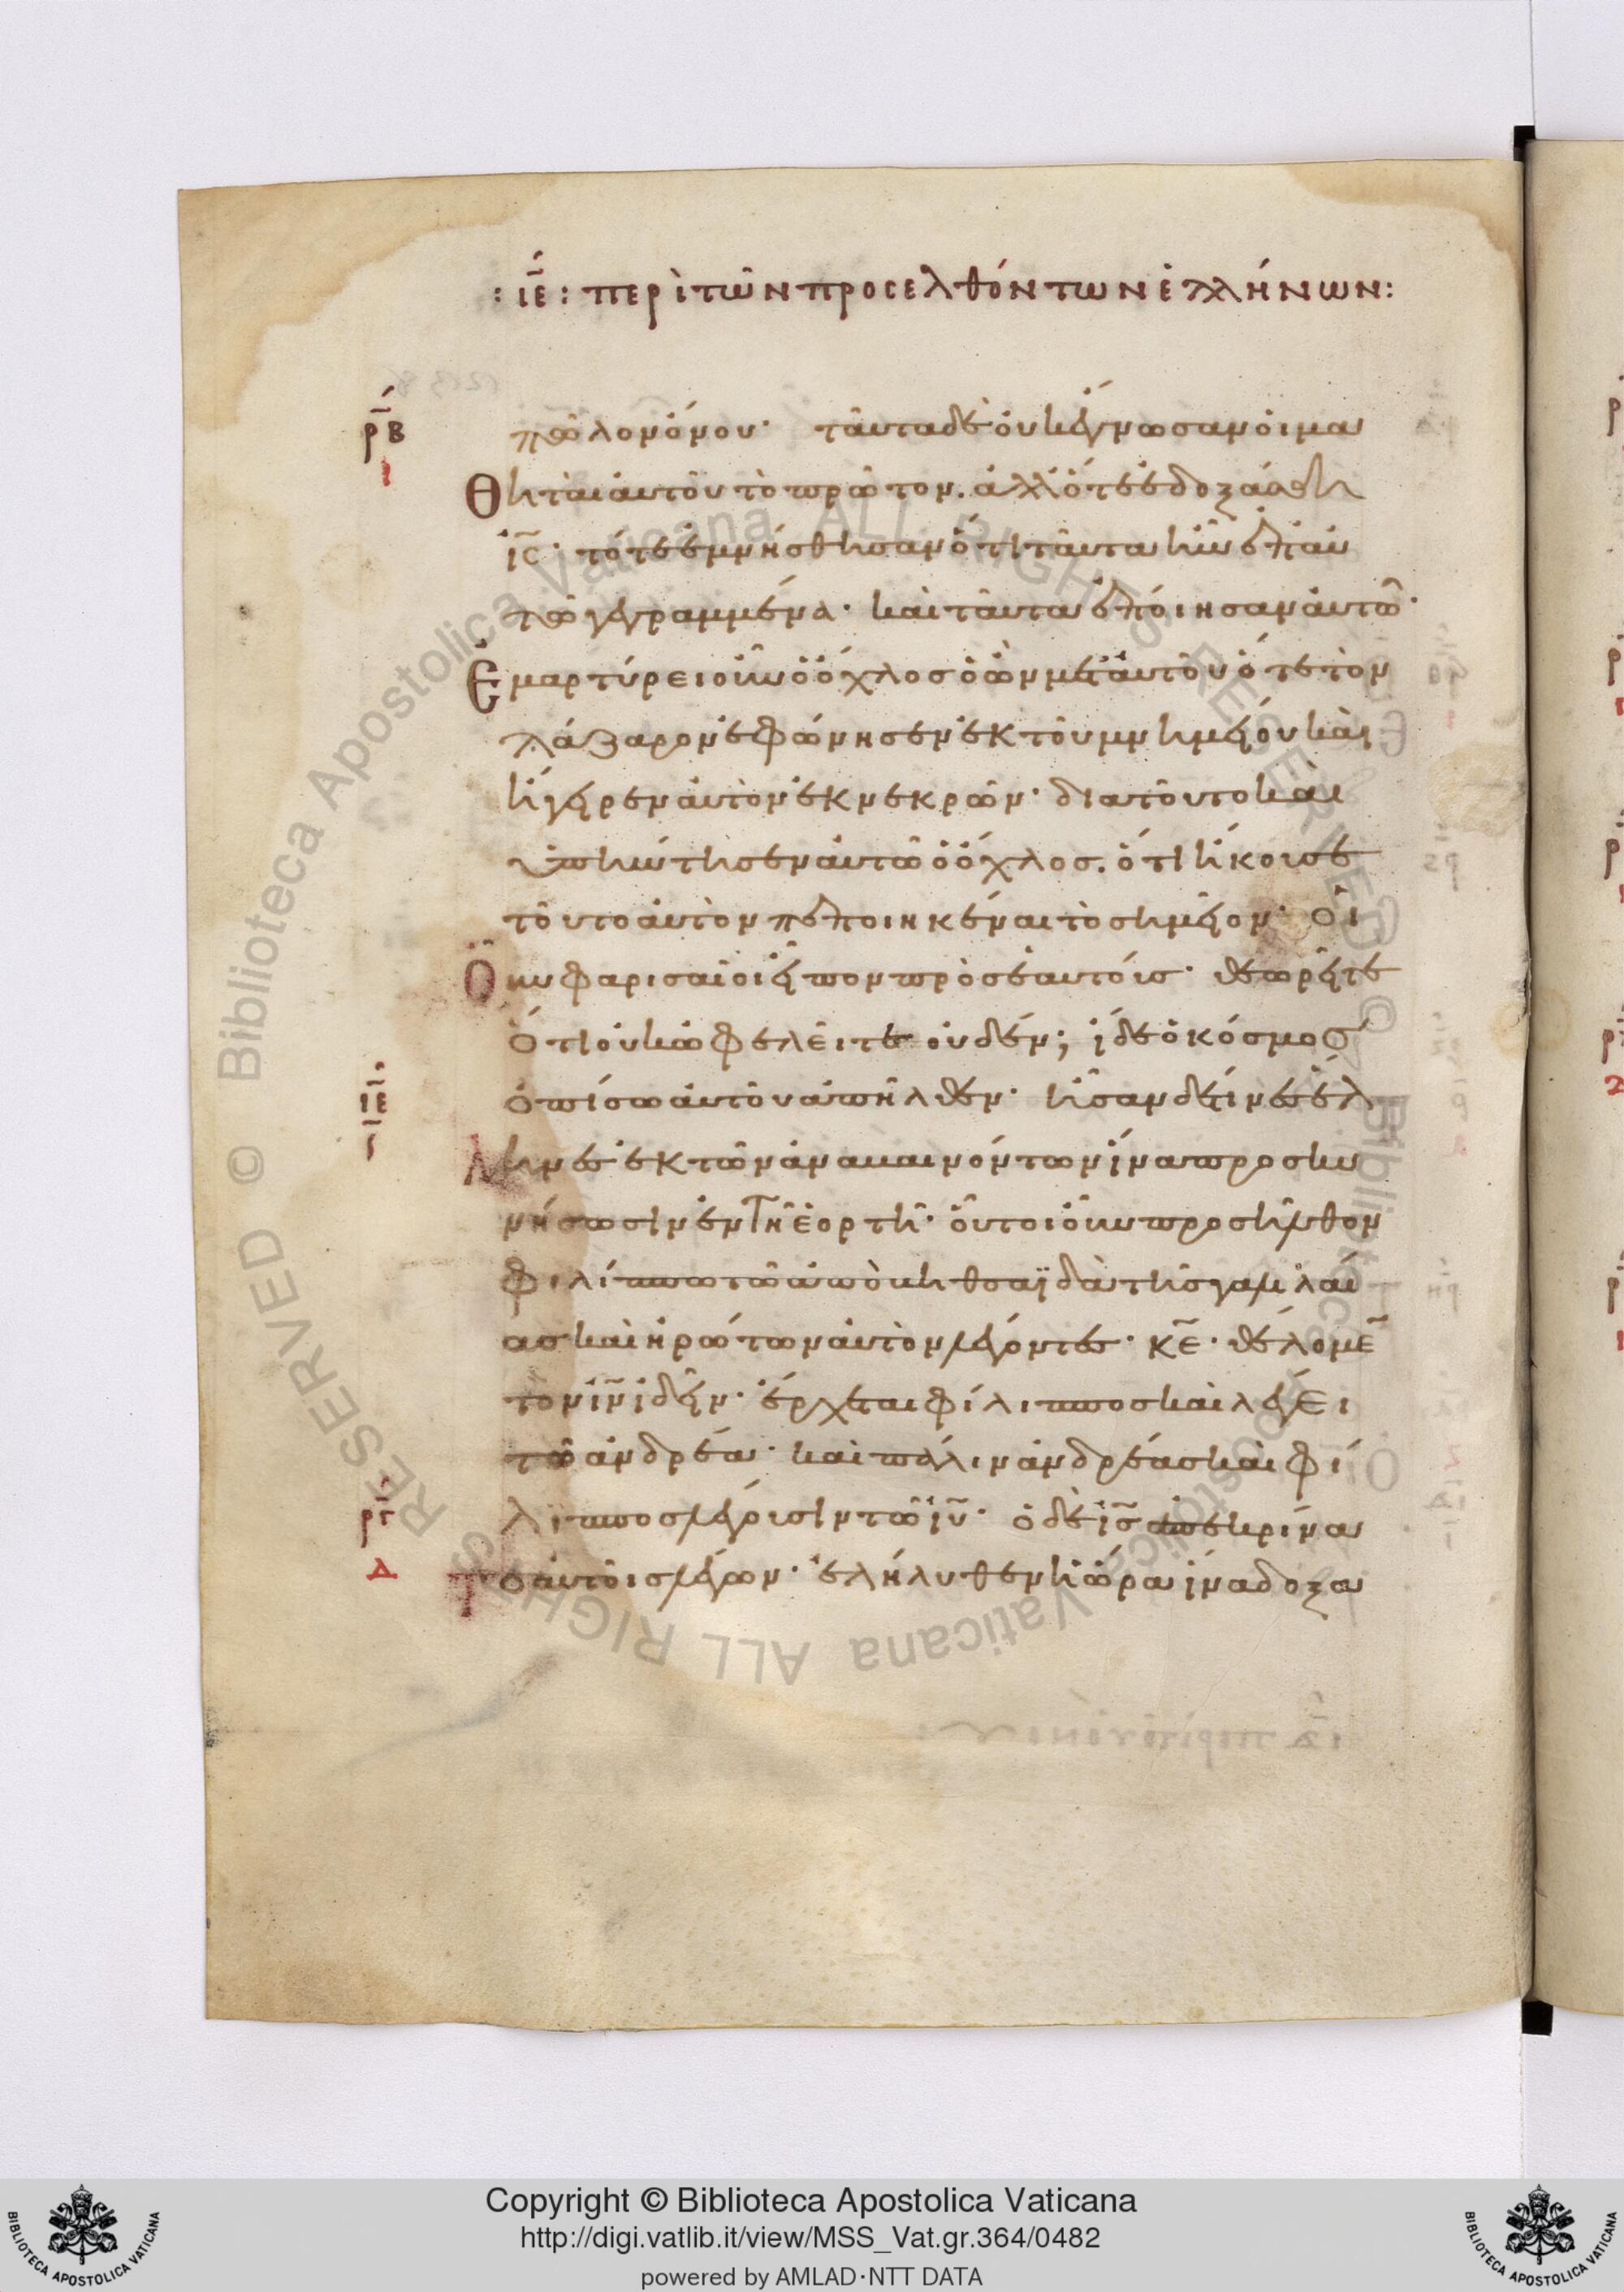 : ιε : περὶ τῶν προσελθόντων ἑλλήνων :
ρβ
ι
πῶλον ὄνου· ταῦτα δὲ οὐκ ἔγνωσαν οἱ μα
θηταὶ αὐτοῦ τὸ πρῶτον. ἀλλ' ὅτε ἐδοξάσθη
ις· τότε ἐμνήσθησαν ὅτι ταῦτα ἦν ἐπ' αὐ
τῷ γεγραμμένα· καὶ ταῦτα ἐποίησαν αὐτῷ·
Ἐμαρτύρει οὖν ὁ ὄχλος ὁ ὢν μετ' αὐτοῦ ὅτε τὸν
λάζαρον ἐφώνησεν ἐκ τοῦ μνημείου καὶ
ἤγειρεν αὐτὸν ἐκ νεκρῶν· διατοῦτο καὶ
ὑπήντησεν αὐτῷ ὁ ὄχλος. ὅτι ἤκουσε
τοῦτο αὐτὸν πεποιηκέναι τὸ σημεῖον· Οἱ
Οὖν φαρισαῖοι εἶπον πρὸς ἑαυτούς· θεωρεῖτε
ὅτι οὐκ ὠφελεῖτε οὐδέν; ἴδε ὁ κόσμος
ὀπίσω αὐτοῦ ἀπῆλθεν· ἦσαν δέ τινες ἕλ
ιε
Ληνες ἐκ τῶν ἀναβαινόντων ἵνα προσκυ
νήσωσιν ἐν τῇ ἑορτῇ· οὗτοι οὖν προσῆλθον
φιλίππῳ τῷ ἀπὸ βηθσαϊδὰ τῆς γαλιλαί
ας καὶ ἠρώτων αὐτὸν λέγοντες· κε· θέλομεν
τὸν ιν ἰδεῖν· ἔρχεται φίλιππος καὶ λέγει
τῷ ἀνδρέα· καὶ πάλιν ἀνδρέας καὶ φί
ργ
Δ
λιππος λέγουσιν τῷ ιυ· ὁ δὲ ις ἀπεκρίνα
Το αὐτοῖς λέγων· ἐλήλυθεν ἡ ὥρα ἵνα δοξα
© Biblioteca Apostolica Vaticana ALL RIGHTS RESERVED © Biblioteca Apostolica Vaticana ALL RIGHTS RESERVED
BIBLIOTECA APOSTOLICA VATICANA
Copyright © Biblioteca Apostolica Vaticana
http://digi.vatlib.it/view/MSS_Vat.gr.364/0482
powered by AMLAD·NTT DATA
BIBLIOTECA APOSTOLICA VATICANA